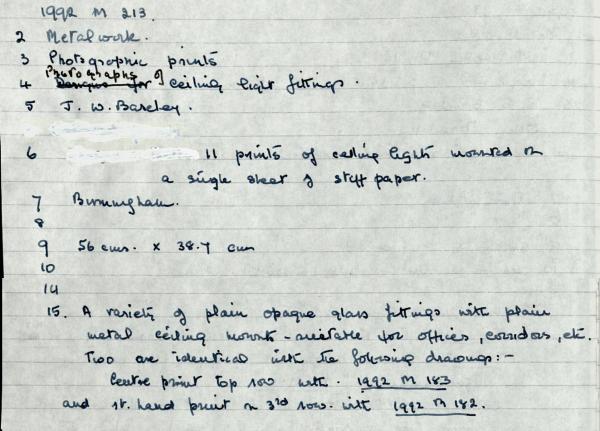 1992 M 213.
2 Metalwork.
3 Photographic prints
Photographs of
4 Designs for ceiling light fittings.
5 J. W. Barcley.
6 11 prints of ceiling lights mounted on
a single sheet of stiff paper.
7 Birmingham.
8
9 56 cms. x 38.7 cm
10
14
15. A variety of plain opaque glass fittings with plain
metal ceiling mounts - suitable for offices, corridors, etc.
Two are identical with the following drawings:-
Centre print top row with. 1992 M 183
and rt. hand print on 3rd row. with 1992 M 182.